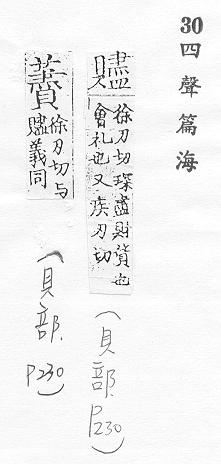 30四聲篇海
贐
徐刃切琛盡財貨也
會礼也又疾刃切
(貝部.P230)
徐刃切与
贐義同
(貝部.P230)